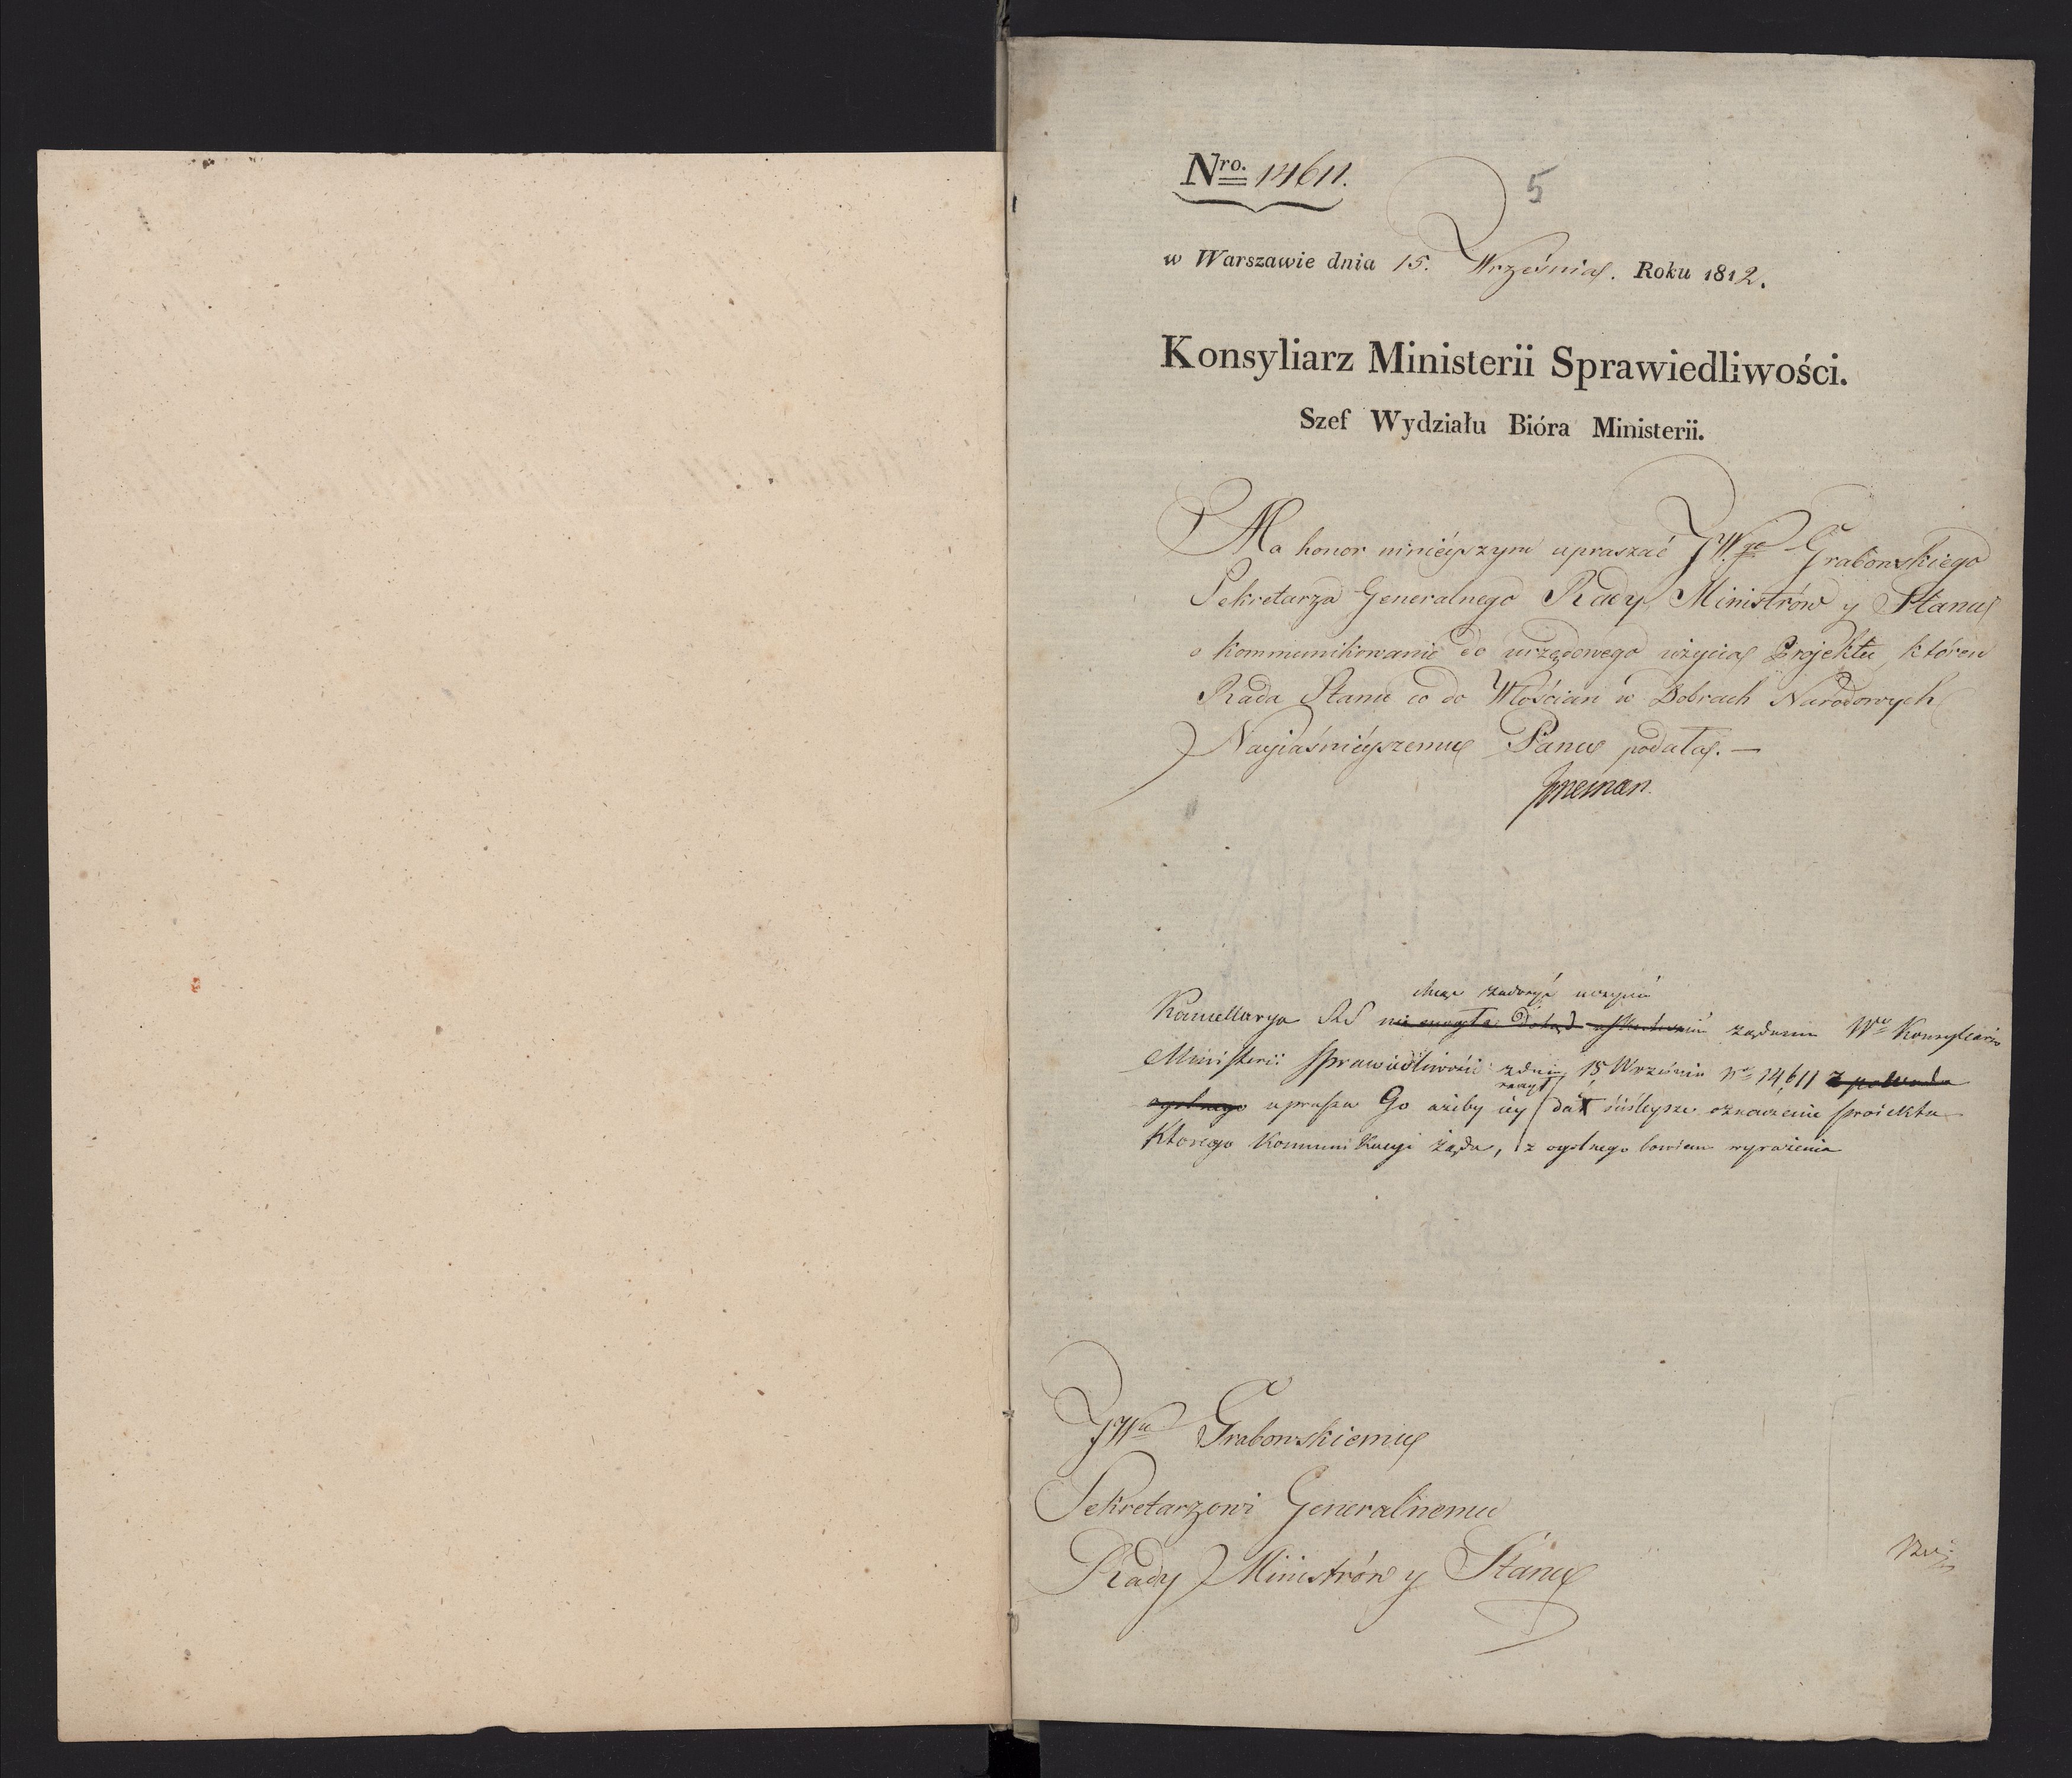 Nro. 14611.
5
w Warszawie dnia 15. Września. Roku 1812.
Konsyliarz Ministerii Sprawiedliwości.
Szef Wydziału Bióra Ministerii.
Ma honor ninieyszym upraszać JWgo Grabowskiego
Sekretarza Generalnego Rady Ministrów y Stanu
o kommunikowanie do urzędowego użycia Projektu, któren
Rada Stanu co do Włościan w Dobrach Narodowych
Nayiaśnieyszemu Panu podała. —
chcąc zadosyć uczynić
Kancellarya RS nie mogła dotąd uskutecznić żądaniu Wo Konsyliarza
Ministerii Sprawiedliwości z dnia 15 Września No 14611 z powodu
raczył
ogolnego uprasza Go ażeby iey dał ściśleysze oznaczenie proiektu
Ktorego Kommunikacyi żąda, z ogolnego bowiem wyrażenia
JWu Grabowskiemu
Sekretarzowi Generalnemu
Rady Ministrów y Stanu